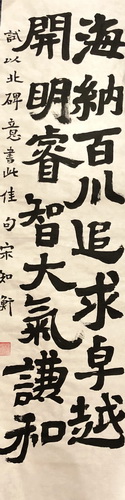 海納百川追求卓越
開明睿智大氣謙和
試以北碑意書此佳句宋知新